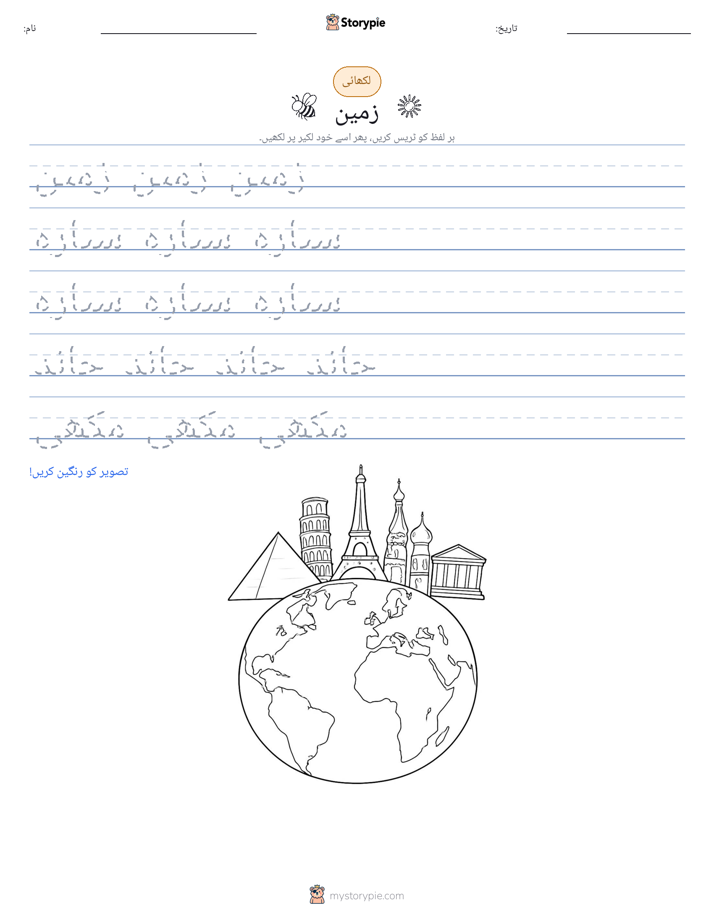 نام:
Storypie
تاریخ:
لکھائی
زمین
ہر لفظ کو ٹریس کریں، پھر اسے خود لکیر پر لکھیں۔
زمین زمین زمین
سیارہ سیارہ سیارہ
سیارہ سیارہ سیارہ
چاند چاند چاند چاند
مکھی مکھی مکھی
تصویر کو رنگین کریں!
mystorypie.com